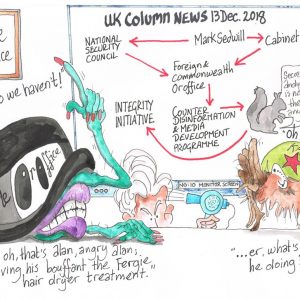 UK COLUMN NEWS 13 Dec. 2018
NATIONAL
SECURITY
COUNCIL
Mark Sedwill
Cabinet
Foreign &
Commonwealth
Or office
INTEGRITY
INITIATIVE
COUNTER
DISINFORMATION
& MEDIA
DEVELOPMENT
PROGRAMME
is no
o we haven't!"
Or office
NO·10 MONITOR SCREEN
oh, that's alan, angry alan;
ving his bouffant the Fergie
hair dryer treatment."
"...er, what's
he doing